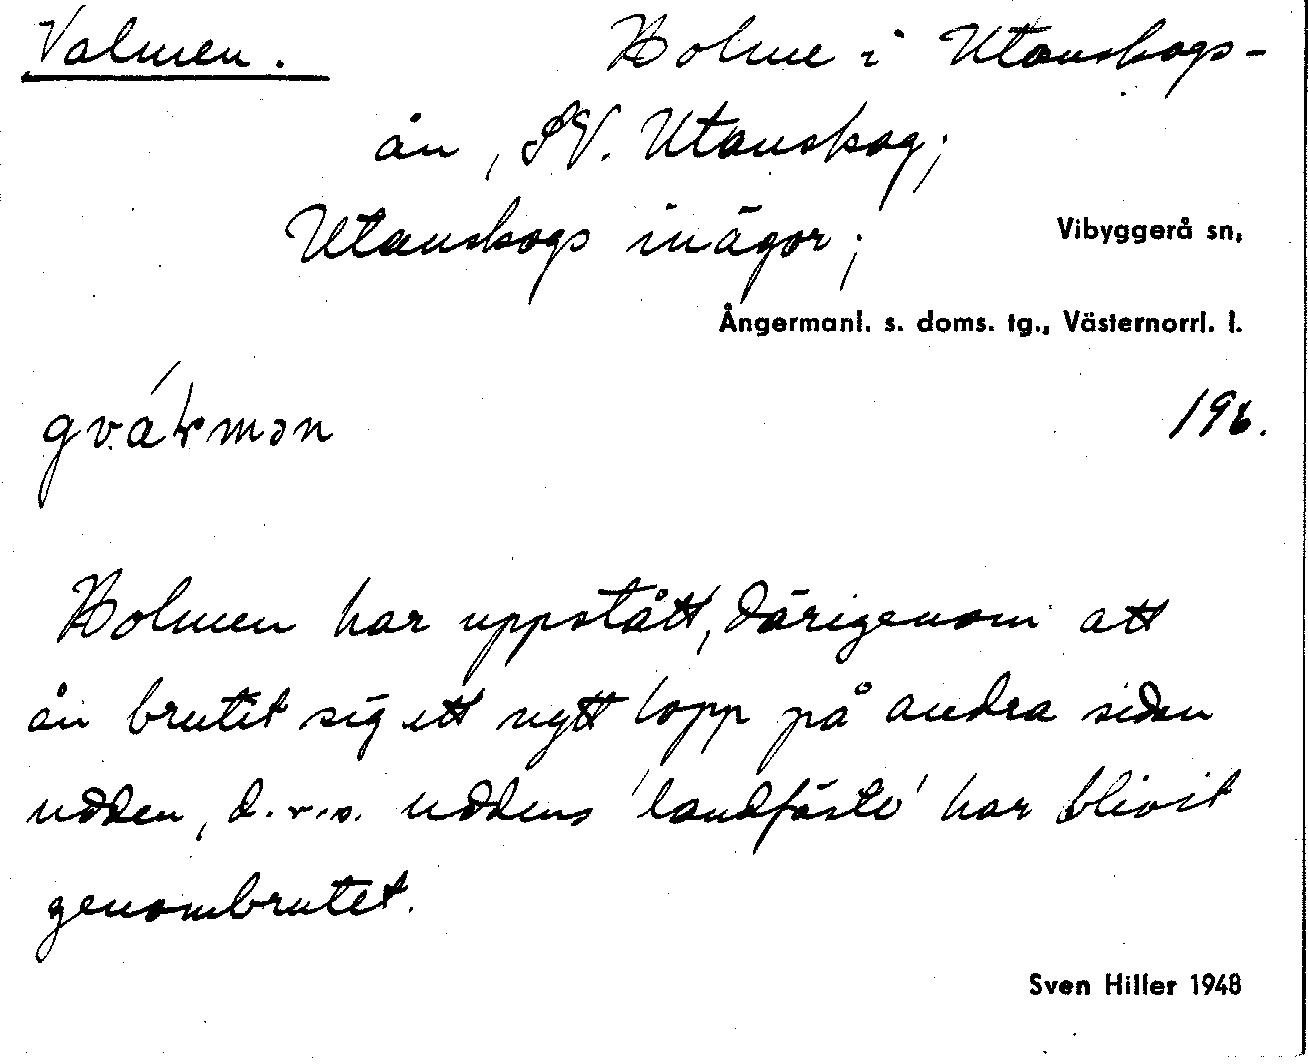 Valmen. Holme i Utanskogs-
ån, SV. Utanskog;
Utanskogs inägor; Vibyggerå sn,
Ångermanl. s. doms. tg., Västernorrl. l.
196.
Holmen har uppstått, därigenom att
ån brutit sig ett nytt lopp på andra sidan
udden, d.v.s. uddens 'landfäste' har blivit
genombrutet.
Sven Hiller 1948